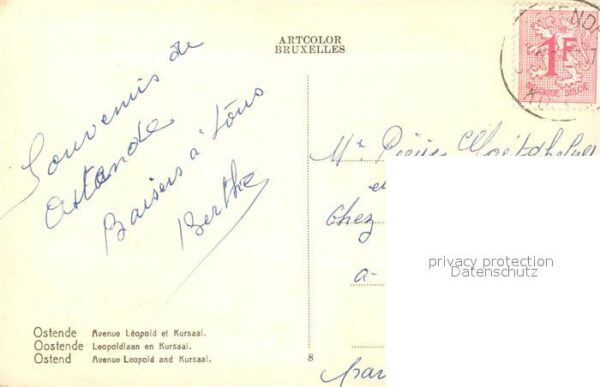 ARTCOLOR
BRUXELLES
Souvenirs de
Ostende
Baisers à tous
Berthe
1F
BELGIQUE BELGIE
Mr
Chez
à
privacy protection
Datenschutz
Ostende Avenue Léopold et Kursaal.
Oostende Leopoldlaan en Kursaal.
Ostend Avenue Leopold and Kursaal.
8